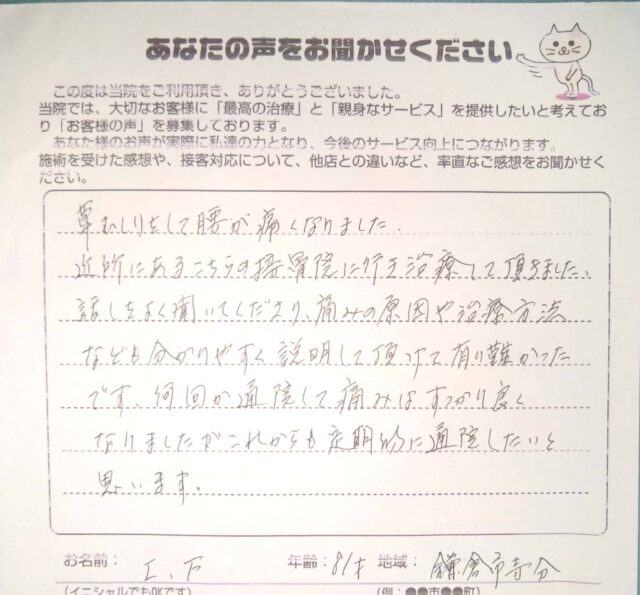 あなたの声をお聞かせください
この度は当院をご利用頂き、ありがとうございました。
当院では、大切なお客様に「最高の治療」と「親身なサービス」を提供したいと考えてお
り「お客様の声」を募集しております。
あなた様のお声が実際に私達の力となり、今後のサービス向上につながります。
施術を受けた感想や、接客対応について、他店との違いなど、率直なご感想をお聞かせく
ださい。
草むしりをして腰が痛くなりました.
近所にあるこちらの接骨院に行き治療して頂きました、
話しをよく聞いてくださり、痛みの原因や治療方法
なども分かりやすく説明して頂けて有り難かった
です、何回か通院して痛みはすっかり良く
なりましたがこれからも定期的に通院したいと
思います。
お名前： I.F 年齢：81才 地域： 鎌倉市寺分
(イニシャルでもOKです) (例：●●市●●町)